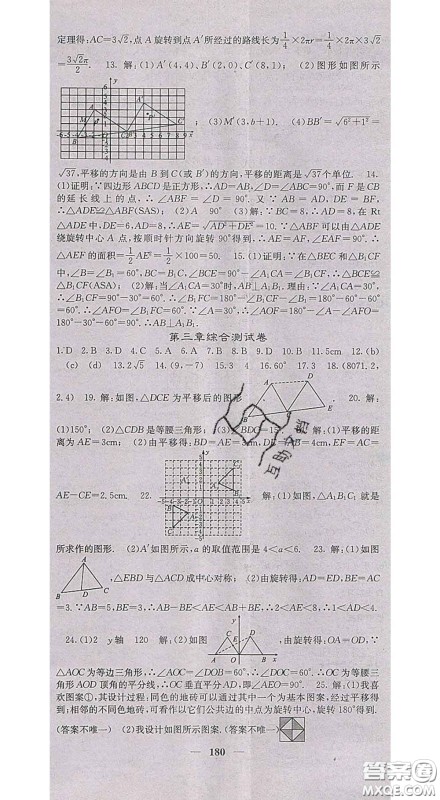 定理得:AC=3√2,点 A 旋转到点 A′所经过的路线长为1/4×2πr=1/4×2π×3√2
=3√2π/2. 13. 解:(1)A′(4,4)、B′(2,0)、C′(8,1); (2)图形如图所示
; (3)M′(3,b+1). (4)BB′=√(6²+1²)=
√37,平移的方向是由 B 到 C(或 B′)的方向,平移的距离是√37个单位. 14.
(1)证明:∵四边形 ABCD 是正方形,∴AD=AB,∠D=∠ABC=90°,而 F 是 CB
的延长线上的点,∴∠ABF=∠D=90°. 又∵AB=AD,DE=BF,
∴△ADE≌△ABF(SAS); (2)A 90° (3)解:∵BC=8,∴AD=8,在 Rt
△ADE 中,DE=6,AD=8,∴AE=√(AD²+DE²)=10.∵△ABF 可以由△ADE
绕旋转中心 A 点,按顺时针方向旋转 90°得到,∴AE=AF,∠EAF=90°.∴
△AEF 的面积=1/2AE²=1/2×100=50. 15.(1)证明:∵在△BCE 和△B₁CF
中,∠B=∠B₁=60°,BC=B₁C,∠BCE=90°-∠A₁CA=∠B₁CF,∴△BCE≌
△B₁CF(ASA); (2)解:当∠A₁CA=30°时,AB⊥A₁B₁.理由:∵∠A₁CA=30°,
∴∠B₁CF=90°-30°=60°.∴∠B₁FC=180°-∠B₁CF-∠B₁=180°-60°-60°
=60°.∴∠AFO=60°.∵∠A=30°,∴∠AOF=180°-∠A-∠AFO=
180°-30°-60°=90°.∴AB⊥A₁B₁.
第三章综合测试卷
1.D 2.B 3.D 4.A 5.A 6.A 7.B 8.B 9.D 10.B 11.5cm 12.(b)
(c) (d) 13.2√5 14.(9,-7) 15.3 16.60° 17.3 18.(8071.2,
2.4) 19. 解:如图,△DCE 为平移后的图形 20. 解:
(1)150°; (2)△CDB 是等腰三角形; (3)∠BDC=15°. 21. 解:(1)平移的距
离为 AE=3cm; (2)由平移得:BD=AE=3cm,DE=AB=4cm,EF=AC=
AE-CE=2.5cm. 22. 解:(1)如图,△A₁B₁C₁就是
所求作的图形. (2)A′如图所示,a 的取值范围是 4<a<6. 23. 解:(1)如图
,△EBD 与△ACD 成中心对称; (2)由旋转得:AD=ED,BE=AC
=3.∵AB=5,BE=3,∴AB-BE<AE<AB+BE,∴2<AE<8,∴1<AD<4.
24.(1)2 y轴 120 解:(2)如图 ,由旋转得:OA=OD.∵
△AOC 为等边三角形,∴∠AOC=∠DOB=60°,∴∠COD=60°,∴OC 为等腰三
角形 AOD 顶角的平分线,∴OC 垂直平分 AD,即∠AEO=90°. 25. 解:(1)我喜
欢图案①,其设计过程:同色的地砖可以通过其中一个为基本图案,经过平移得
到;相邻的不同色地砖,可看作以它们公共边的中点为旋转中心,旋转 180°得到.
(答案不唯一) (2)我设计如图所示图案.(答案不唯一)
180
互助文档
答案圈
MXQE.COM